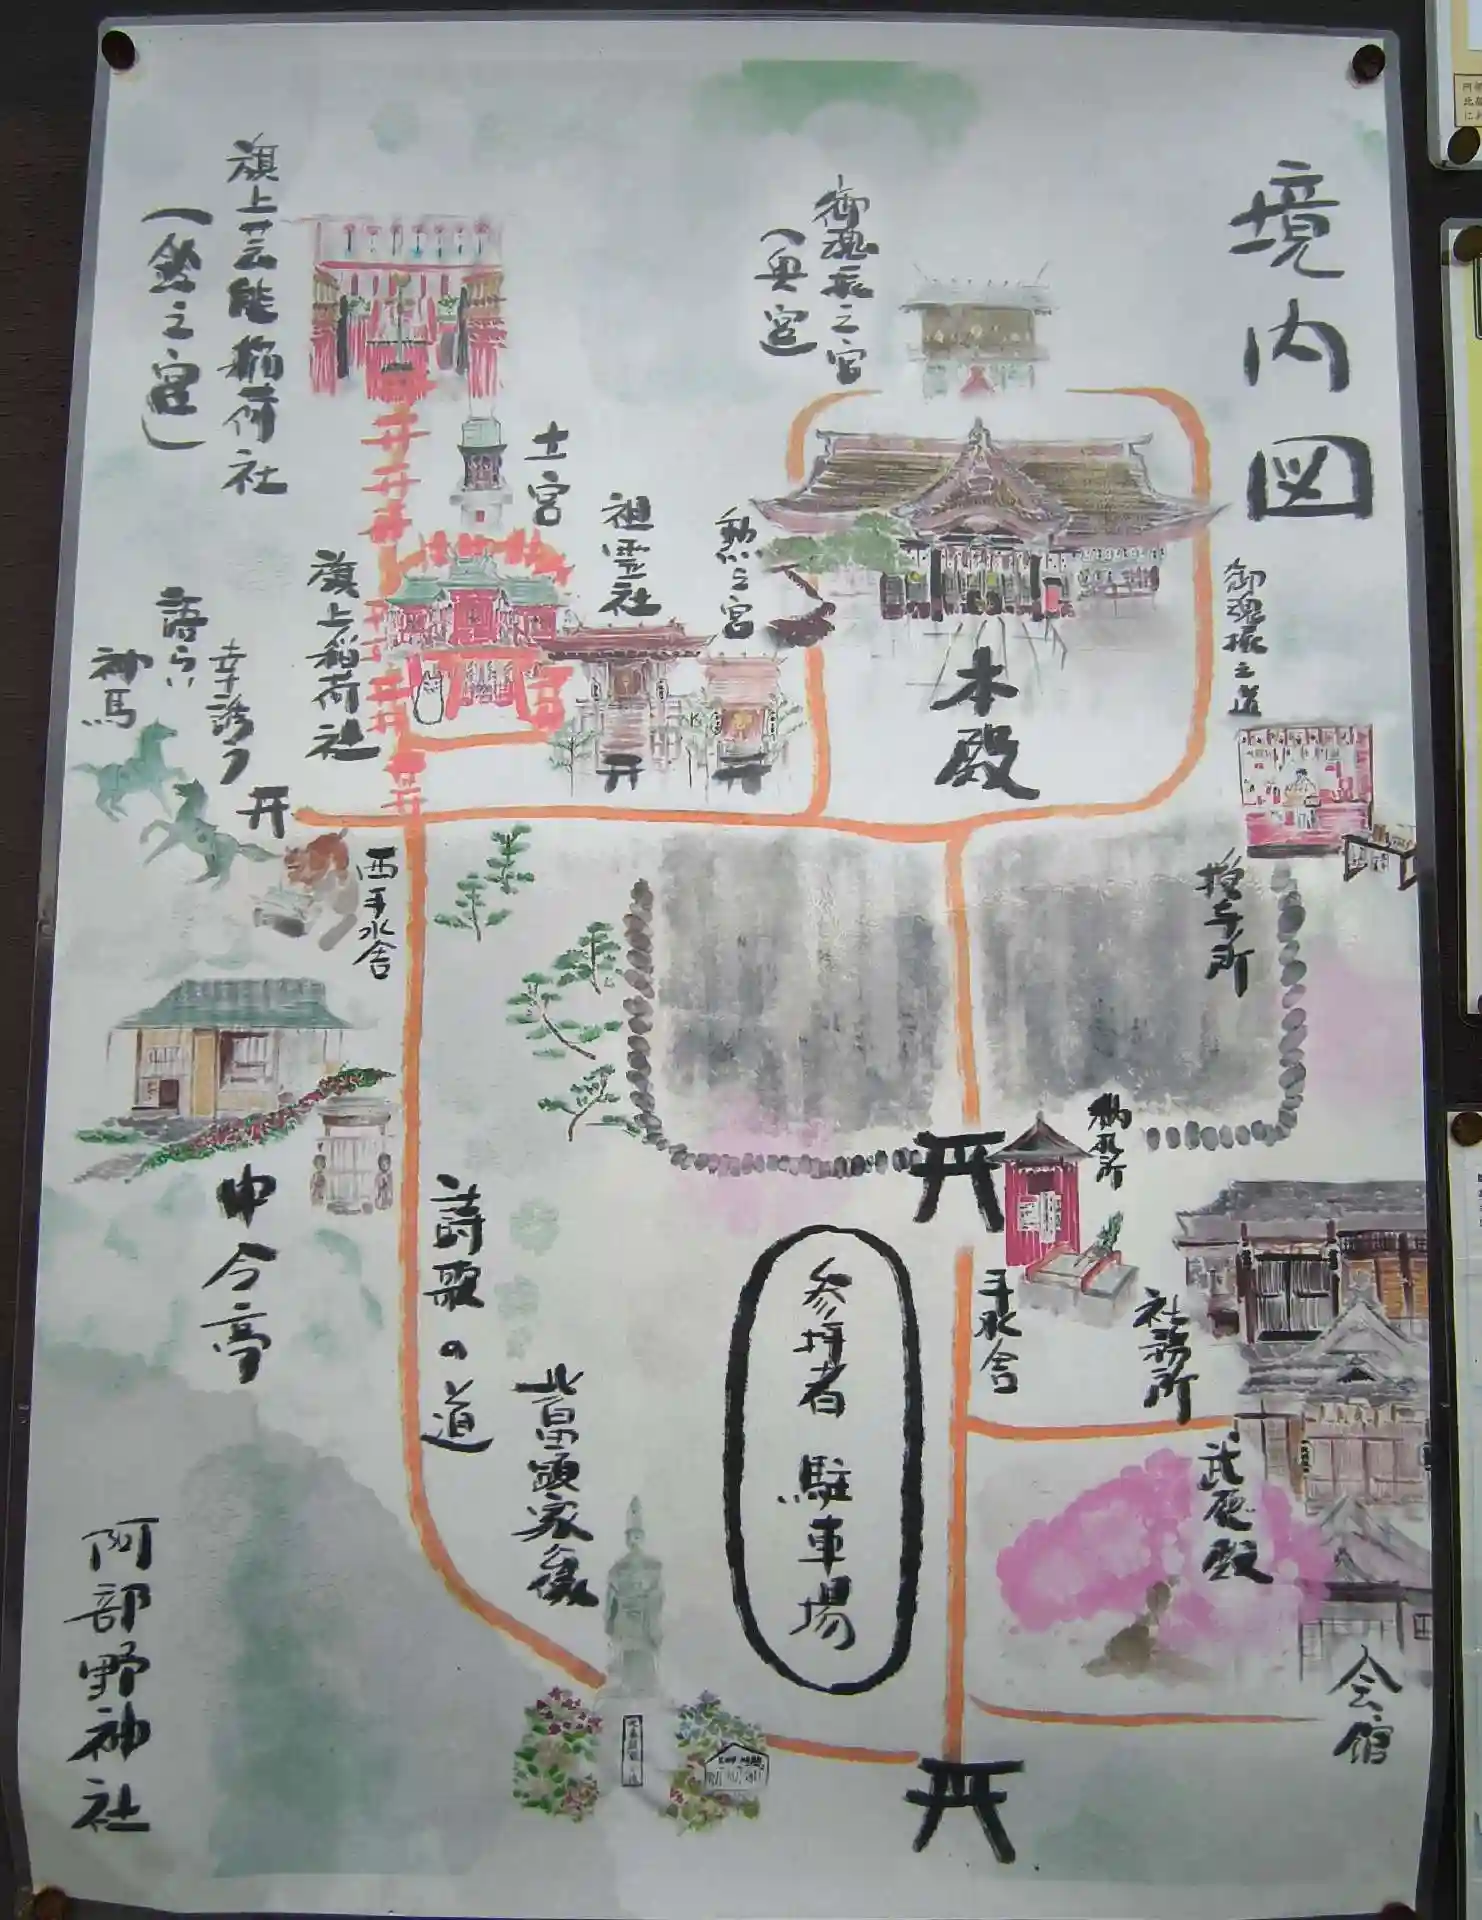 境内図
御魂振之宮
(奥宮)
旗上芸能稲荷社
(鈴之宮)
土宮
祖霊社
勲之宮
旗上稲荷社
本殿
御魂振之道
幸誘う
語らい
神馬
西手水舎
授与所
納札所
手水舎
社務所
武徳殿
会館
参拝者 駐車場
詩歌の道
北畠顕家像
中今亭
阿部野神社